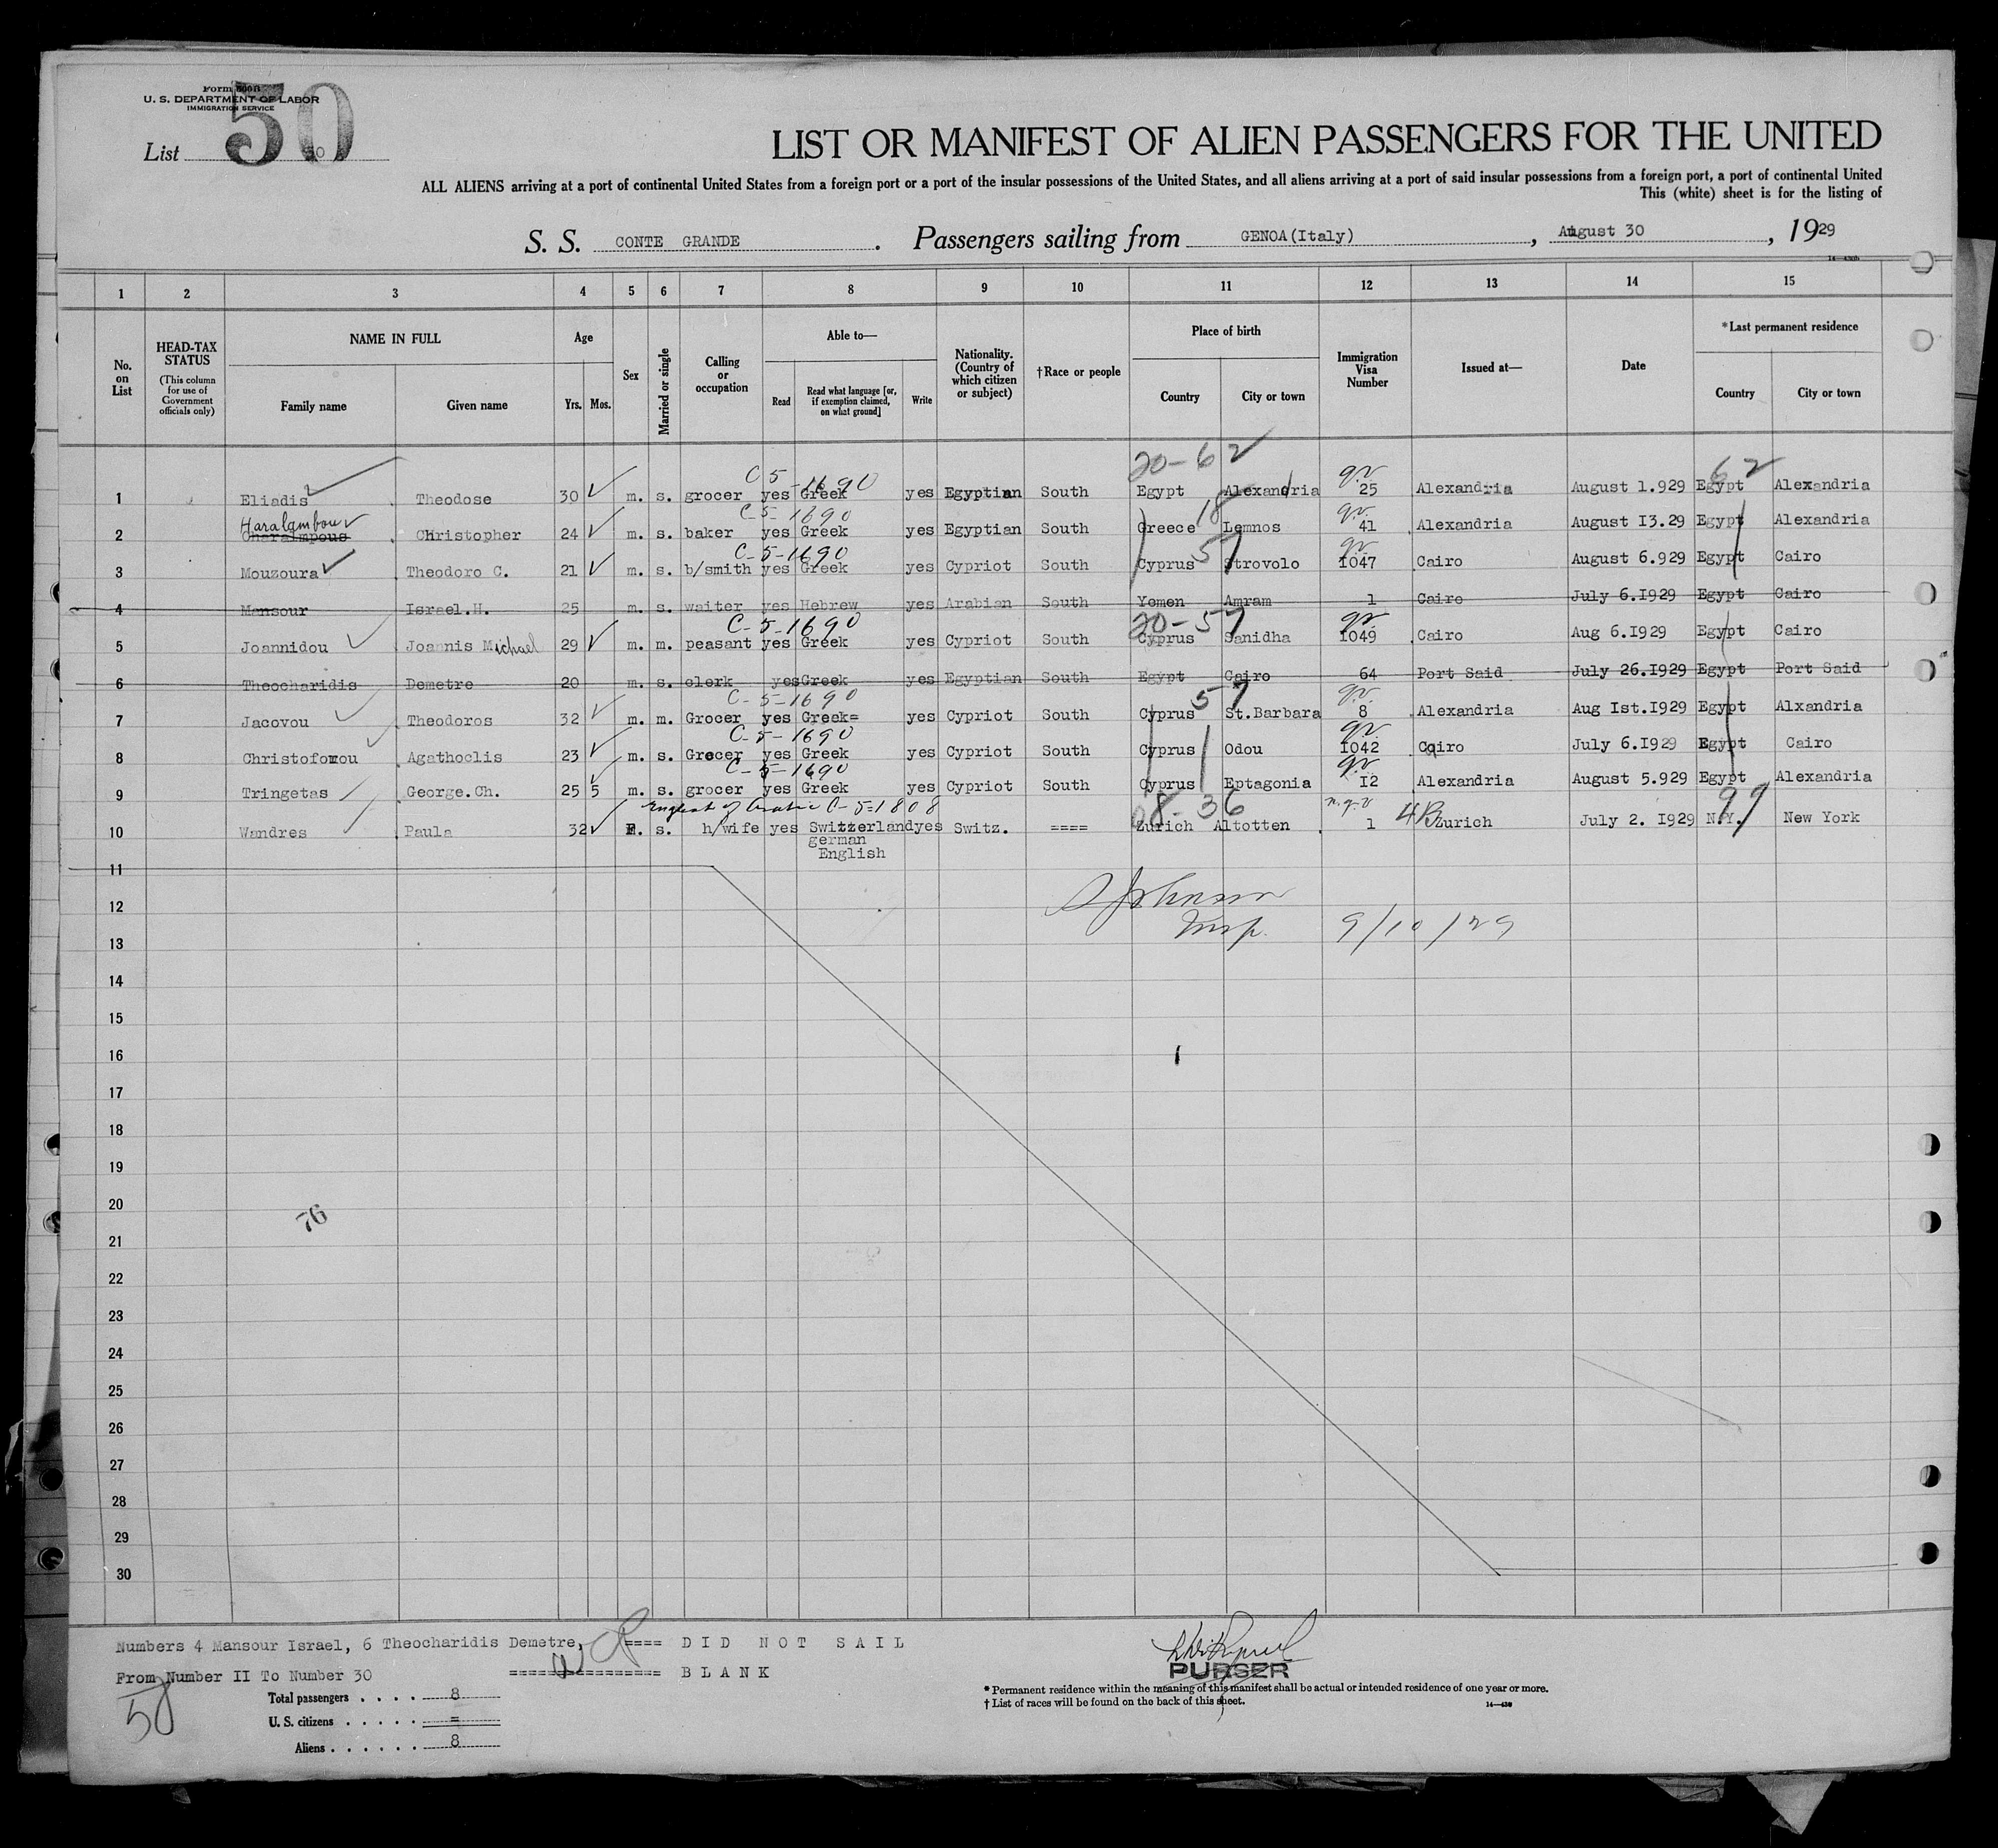 Form 500B
U. S. DEPARTMENT OF LABOR
IMMIGRATION SERVICE
50
List 50
LIST OR MANIFEST OF ALIEN PASSENGERS FOR THE UNITED
ALL ALIENS arriving at a port of continental United States from a foreign port or a port of the insular possessions of the United States, and all aliens arriving at a port of said insular possessions from a foreign port, a port of continental United
This (white) sheet is for the listing of
S. S. CONTE GRANDE . Passengers sailing from GENOA(Italy) , August 30 , 1929
1 2 3 4 5 6 7 8 9 10 11 12 13 14 15
No. on List
HEAD-TAX STATUS (This column for use of Government officials only)
NAME IN FULL
Family name Given name
Age
Yrs. Mos.
Sex
Married or single
Calling or occupation
Able to—
Read
Read what language [or, if exemption claimed, on what ground]
Write
Nationality. (Country of which citizen or subject)
†Race or people
Place of birth
Country City or town
Immigration Visa Number
Issued at—
Date
*Last permanent residence
Country City or town
C 5-1690 20-62 qv 62
1 Eliadis Theodose 30 m. s. grocer yes Greek yes Egyptian South Egypt Alexandria 25 Alexandria August 1.929 Egypt Alexandria
Haralambou C-5-1690 18 qv
2 Charalmpous Christopher 24 m. s. baker yes Greek yes Egyptian South Greece Lemnos 41 Alexandria August I3.29 Egypt Alexandria
C-5-1690 57 qv
3 Mouzoura Theodoro C. 21 m. s. b/smith yes Greek yes Cypriot South Cyprus Strovolo 1047 Cairo August 6.929 Egypt Cairo
4 Mansour Israel.H. 25 m. s. waiter yes Hebrew yes Arabian South Yemen Amram 1 Cairo July 6.I929 Egypt Cairo
C-5-1690 20-57 qv
5 Joannidou Joannis Michael 29 m. m. peasant yes Greek yes Cypriot South Cyprus Sanidha 1049 Cairo Aug 6.I929 Egypt Cairo
6 Theocharidis Demetre 20 m. s. clerk yes Greek yes Egyptian South Egypt Cairo 64 Port Said July 26.I929 Egypt Port Said
C-5-1690 57 qv
7 Jacovou Theodoros 32 m. m. Grocer yes Greek= yes Cypriot South Cyprus St.Barbara 8 Alexandria Aug Ist.I929 Egypt Alxandria
C-5-1690 qv
8 Christofomou Agathoclis 23 m. s. Grocer yes Greek yes Cypriot South Cyprus Odou 1042 Cairo July 6.I929 Egypt Cairo
C-5-1690 qv
9 Tringetas George.Ch. 25 5 m. s. grocer yes Greek yes Cypriot South Cyprus Eptagonia I2 Alexandria August 5.929 Egypt Alexandria
C-5-1808 28-36 n.q.v 99
10 Wandres Paula 32 F. s. h/wife yes Switzerland yes Switz. ==== Zurich Altotten 1 4B Zurich July 2. I929 N.Y. New York
german
English
11
12
S Johnson
13
Insp. 9/10/29
14
15
16
17
18
19
20
76
21
22
23
24
25
26
27
28
29
30
Numbers 4 Mansour Israel, 6 Theocharidis Demetre, ==== DID NOT SAIL
From Number II To Number 30 =============== BLANK
50
PURSER
Total passengers . . . . 8
U. S. citizens . . . . . =
Aliens . . . . . . 8
* Permanent residence within the meaning of this manifest shall be actual or intended residence of one year or more.
† List of races will be found on the back of this sheet.
14—430